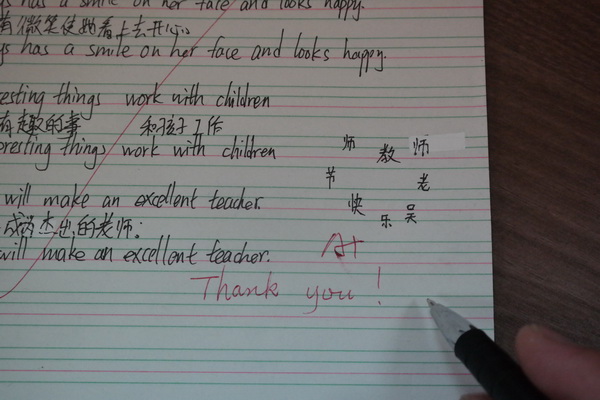 gs has a smile on her face and looks happy.
有微笑使她看上去开心
gs has a smile on her face and looks happy.
resting things work with children
有趣的事 和孩子工作
oresting things work with children
will make an excellent teacher.
成为杰出的老师:
will make an excellent teacher.
吴老师教师节快乐
A+
Thank you!